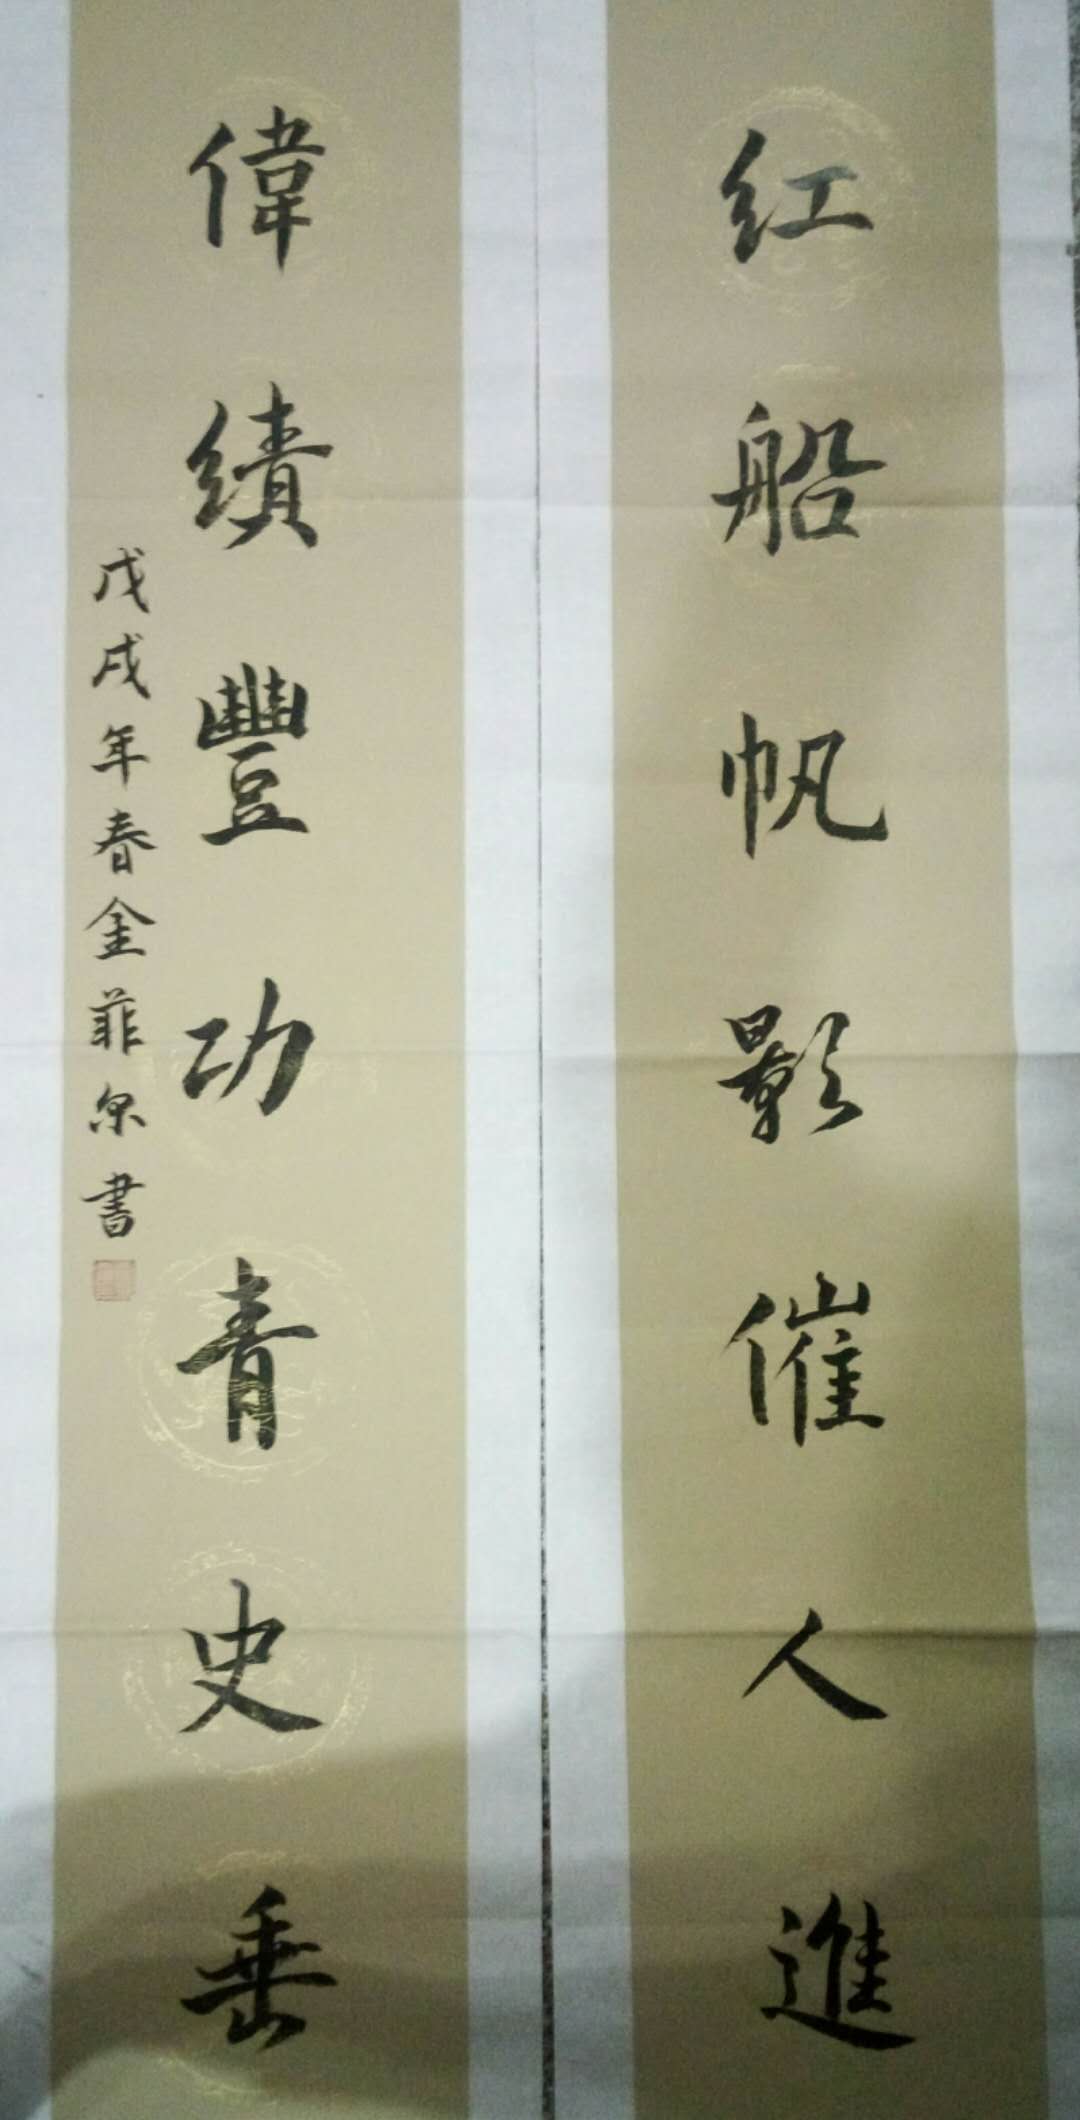 红船帆影催人進
偉績豐功青史垂
戊戌年春金菲尔書